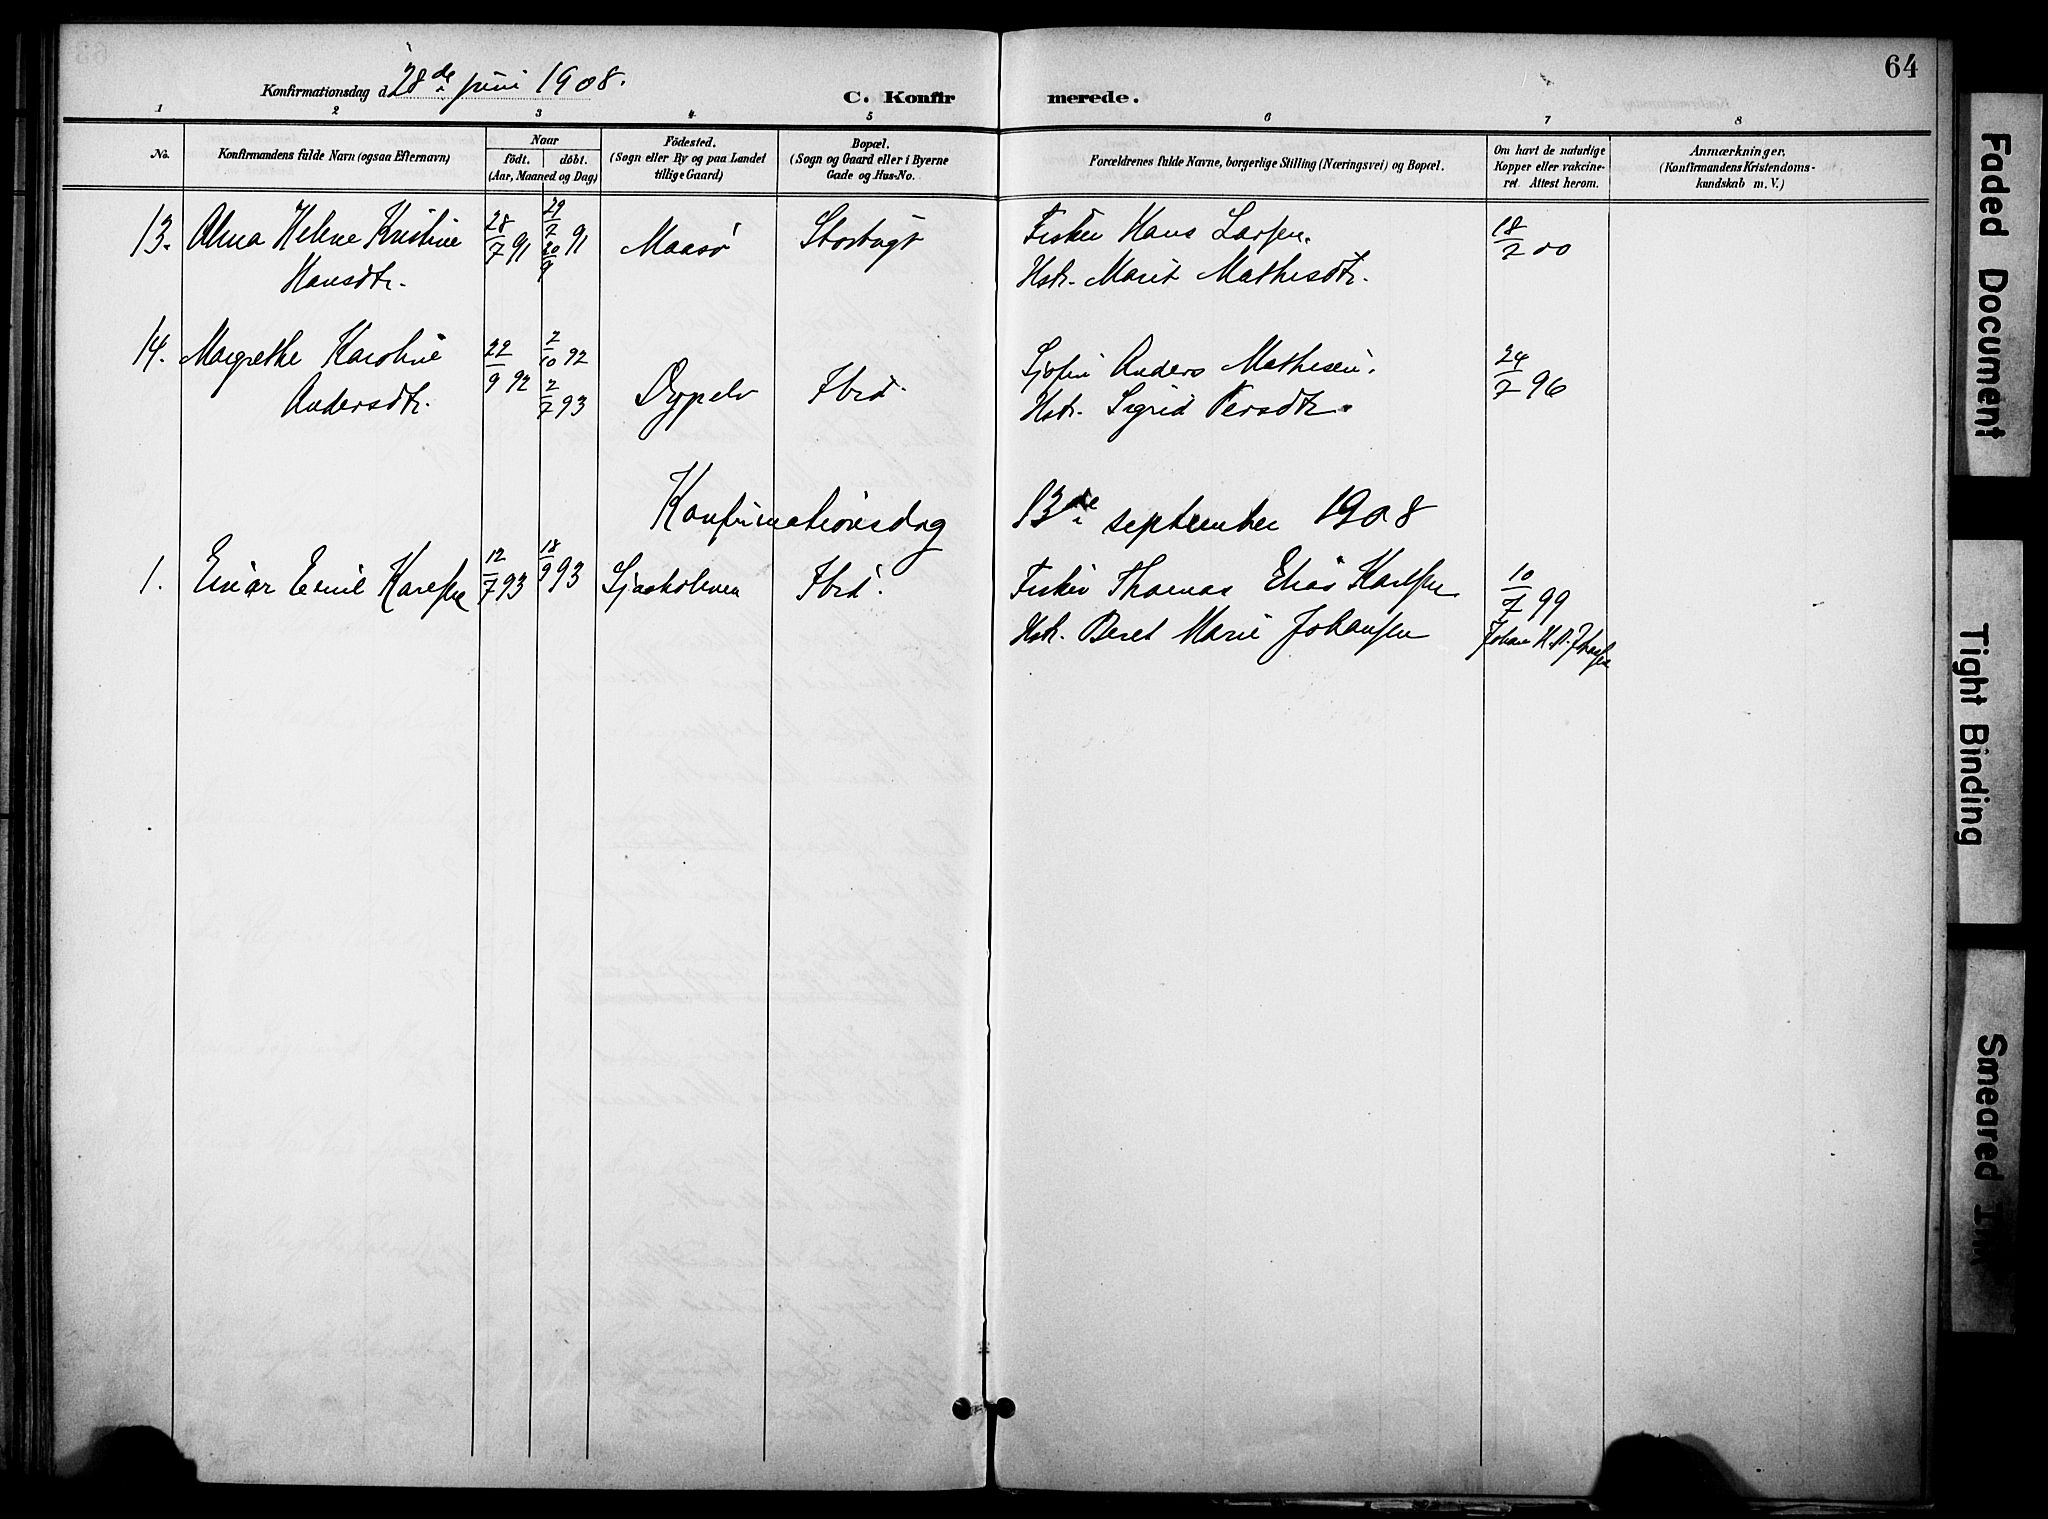 64
Konfirmationsdag d. 28de juni 1908.
C. Konfirmerede.
1 2 3 4 5 6 7 8
No.
Konfirmandens fulde Navn (ogsaa Efternavn)
Naar
födt. döbt.
(Aar, Maaned og Dag)
Födested.
(Sogn eller By og paa Landet
tillige Gaard)
Bopæl.
(Sogn og Gaard eller i Byerne
Gade og Hus-No.
Forældrenes fulde Navne, borgerlige Stilling (Næringsvei) og Bopæl.
Om havt de naturlige
Kopper eller vakcine-
ret. Attest herom.
Anmærkninger,
(Konfirmandens Kristendoms-
kundskab m. V.)
13. Alma Helene Kristine 28/7 91 29/7 91 Maasö Storbugt Fisker Hans Larsen. 18/7 00
Hansdtr. 20/9 Hstr. Marit Mathisdtr.
14. Margrethe Karoline 22/9 92 2/10 92 Sjöfin Anders Mathisen. 24/7 96
Andersdtr. 2/7 93 Dypelv Ibid. Hstr. Sigrid Persdtr.
Konfirmationsdag 13de september 1908
1. Einar Emil Karlsen 12/7 93 18/9 93 Sjaaholmen Ibid. Fisker Thomas Elias Karlsen 10/7 99
Hstr. Beret Marie Johansen Johan
Faded Document
Tight Binding
Smeared Ink